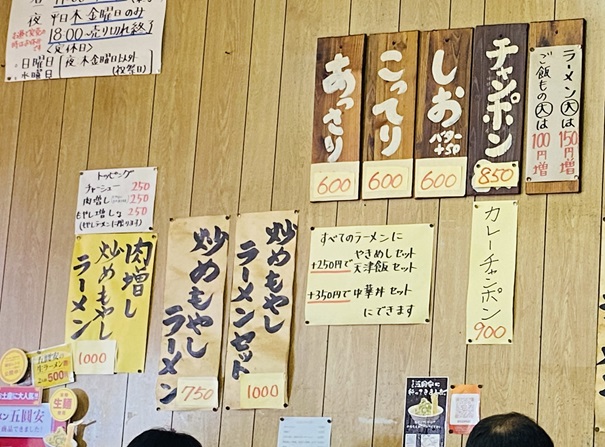 夜 木金曜日のみ
18:00~売り切れ終了
<定休日>
日曜日
水曜日
夜 木金曜日以外
(祝祭日)
あっさり
600
こってり
600
しお
バター
+50
600
チャンポン
850
ラーメン大は150円増
ご飯もの大は100円増
トッピング
チャーシュー 250
肉増し 250
もやし増し 250
肉増し
炒めもやし
ラーメン
1000
炒めもやし
ラーメン
750
炒めもやし
ラーメンセット
1000
すべてのラーメンに
+250円で やきめしセット
天津飯セット
+350円で 中華丼セット
にできます
カレーチャンポン
900
生ラーメン
500円
五回安